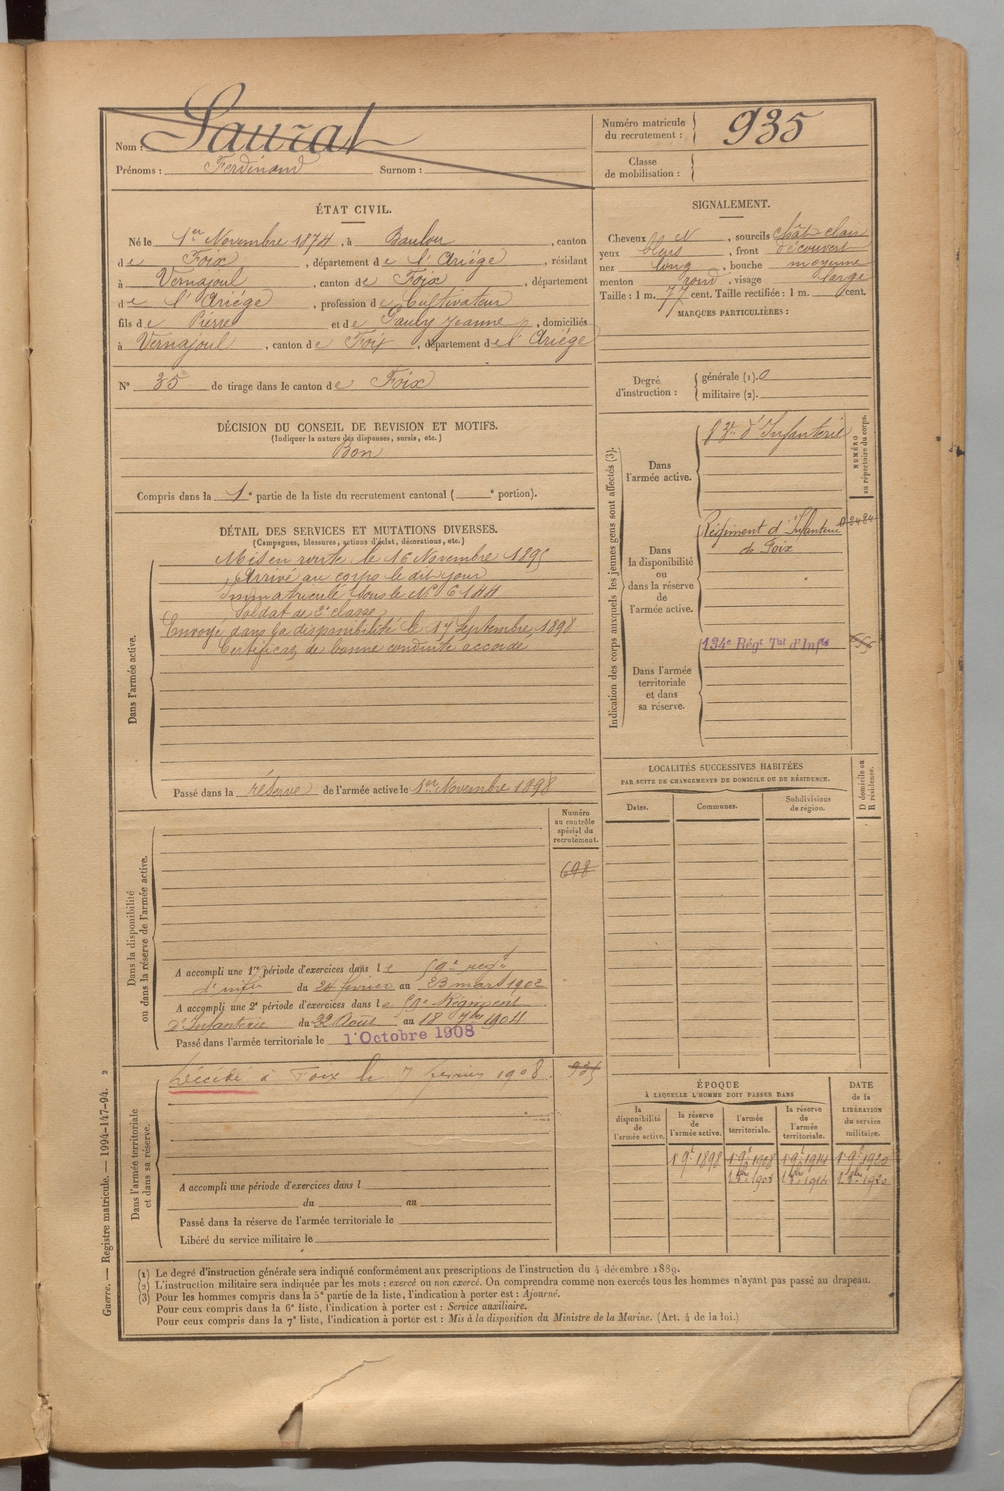 Nom : Saurat
Prénoms : Ferdinand Surnom :
Numéro matricule du recrutement : 935
Classe de mobilisation :
ÉTAT CIVIL.
Né le 1er Novembre 1874, à Baulou, canton
de Foix, département de l'Ariège, résidant
à Vernajoul, canton de Foix, département
de l'Ariège, profession de Cultivateur
fils de Pierre et de Sauly Jeanne, domiciliés
à Vernajoul, canton de Foix, département de l'Ariège
N° 35 de tirage dans le canton de Foix
SIGNALEMENT.
Cheveux, sourcils chât-clair
yeux bleus, front découvert
nez long, bouche moyenne
menton rond, visage large
Taille : 1 m. 77 cent. Taille rectifiée : 1 m. cent.
MARQUES PARTICULIÈRES :
Degré d'instruction : générale (1). 0
militaire (2).
DÉCISION DU CONSEIL DE REVISION ET MOTIFS.
(Indiquer la nature des dispenses, sursis, etc.)
Bon
Compris dans la 1e partie de la liste du recrutement cantonal ( e portion).
DÉTAIL DES SERVICES ET MUTATIONS DIVERSES.
(Campagnes, blessures, actions d'éclat, décorations, etc.)
Dans l'armée active.
Mis en route le 16 Novembre 1895
Arrivé au corps le dit jour
Immatriculé sous le N° 6144
Soldat de 2e classe
Envoyé dans la disponibilité le 17 Septembre 1898
Certificat de bonne conduite accordé
Passé dans la réserve de l'armée active le 1er Novembre 1898
Indication des corps auxquels les jeunes gens sont affectés (3).
NUMÉRO au répertoire du corps.
Dans l'armée active.
d'Infanterie
Dans la disponibilité ou dans la réserve de l'armée active.
Régiment d'Infanterie
de Foix
Dans l'armée territoriale et dans sa réserve.
134e Régt Tal d'Inftie
LOCALITÉS SUCCESSIVES HABITÉES
PAR SUITE DE CHANGEMENTS DE DOMICILE OU DE RÉSIDENCE.
Dates. Communes. Subdivisions de région. D domicile ou R résidence.
Dans la disponibilité ou dans la réserve de l'armée active.
Numéro au contrôle spécial du recrutement.
698
A accompli une 1re période d'exercices dans le 59e regt
d'infie du 24 février au 23 mars 1902
A accompli une 2e période d'exercices dans le 59e Régiment
d'Infanterie du 22 Août au 18 7bre 1904
Passé dans l'armée territoriale le 1 Octobre 1908
Dans l'armée territoriale et dans sa réserve.
Décédé à Foix le 7 février 1908. 935
A accompli une période d'exercices dans l
du au
Passé dans la réserve de l'armée territoriale le
Libéré du service militaire le
ÉPOQUE
À LAQUELLE L'HOMME DOIT PASSER DANS
DATE de la LIBÉRATION du service militaire.
la disponibilité de l'armée active. la réserve de l'armée active. l'armée territoriale. la réserve de l'armée territoriale.
1 9e 1898 1 9e 1908 1 9e 1914 1 9e 1920
1908 1914 1920
(1) Le degré d'instruction générale sera indiqué conformément aux prescriptions de l'instruction du 4 décembre 1889.
(2) L'instruction militaire sera indiquée par les mots : exercé ou non exercé. On comprendra comme non exercés tous les hommes n'ayant pas passé au drapeau.
(3) Pour les hommes compris dans la 5e partie de la liste, l'indication à porter est : Ajourné.
Pour ceux compris dans la 6e liste, l'indication à porter est : Service auxiliaire.
Pour ceux compris dans la 7e liste, l'indication à porter est : Mis à la disposition du Ministre de la Marine. (Art. 4 de la loi.)
Guerre. — Registre matricule. — 1994-147-94. 2